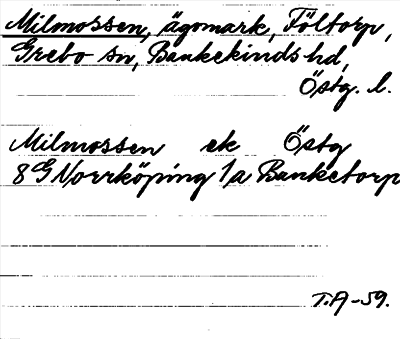 Milmossen, ägomark, Föltorp,
Grebo sn, Bankekinds hd,
Östg. l.
Milmossen ek Östg
8 G Norrköping 1a Banketorp
T.A-59.